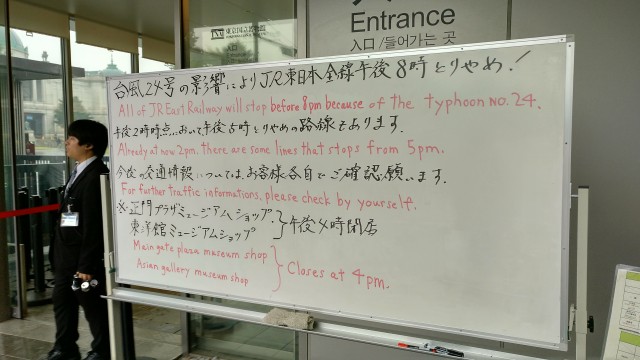 東京国立博物館
Entrance
入口 / 들어가는 곳
台風24号の影響によりJR東日本全線午後8時とりやめ!
All of JR East Railway will stop before 8pm because of the typhoon NO. 24.
午後2時時点...おいて午後5時とりやめの路線もあります.
Already at now 2pm, there are some lines that stops from 5pm.
今後の交通情報については、お客様各自でご確認願います.
For further traffic informations, please check by yourself.
※正門プラザミュージアムショップ
東洋館ミュージアムショップ
}午後4時閉店
Main gate plaza museum shop
Asian gallery museum shop
}Closes at 4pm.